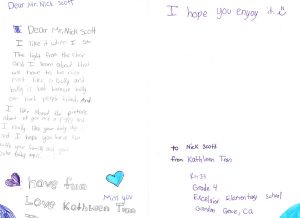 Dear Mr. Nick Scott
Dear Mr. Nick Scott
I like it when I see
The light from the door
and I learn about that
we have to be nice
not like a bully and
bully is bad because bully
can hurt people friend. And
I like about the pictures
about
I really like your
and I hope you have fun
with your family and your
have fun
Love Kathleen Tran
Miss you
I hope you enjoy it
to Nick Scott
from Kathleen Tran
Rm 33
Grade 4
Excelsior Elementary School
Garden Grove, CA